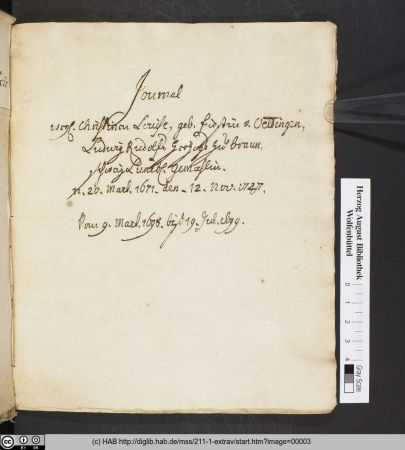 Journal
Christinen Louise, geb. Fürstin v. Oettingen,
Ludwig Rudolfs Herzogs zu Braun,
schweig Lüneb. Gemahlin.
n. 20. Mart. 1671. den 12. Nov. 1747.
Vom 9. Mart. 1698. biß 19. Jul. 1699.
Herzog August Bibliothek
Wolfenbüttel
0 1 2 3 4
Gray Scale
(c) HAB http://diglib.hab.de/mss/211-1-extrav/start.htm?image=00003